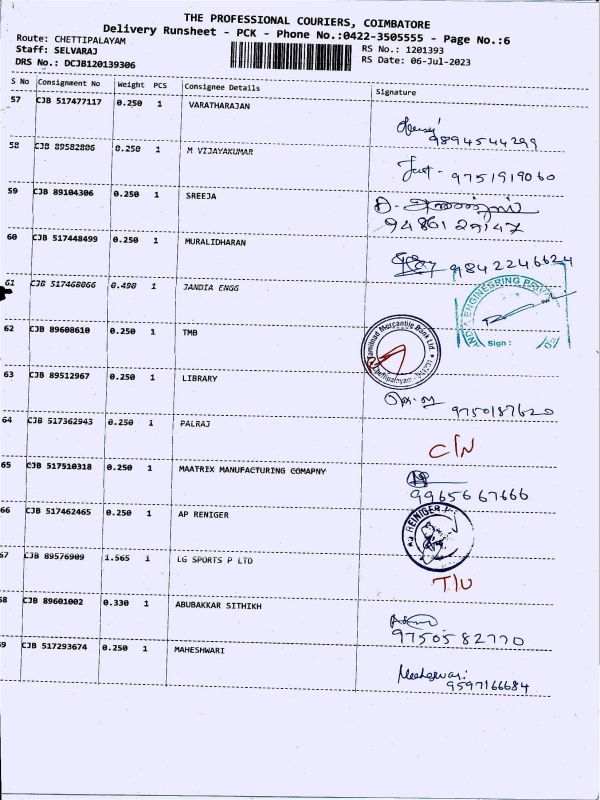 THE PROFESSIONAL COURIERS, COIMBATORE
Delivery Runsheet - PCK - Phone No.:0422-3505555 - Page No.:6
Route: CHETTIPALAYAM
RS No.: 1201393
Staff: SELVARAJ
RS Date: 06-Jul-2023
DRS No.: DCJB120139306
S No Consignment No Weight PCS Consignee Details Signature
57 CJB 517477117 0.250 1 VARATHARAJAN
9894544299
58 CJB 89582806 0.250 1 M VIJAYAKUMAR
9751919060
59 CJB 89104306 0.250 1 SREEJA
9486129147
60 CJB 517448499 0.250 1 MURALIDHARAN
9842246624
61 CJB 517468066 0.490 1 JANDIA ENGG
ENGINEERING
Sign :
62 CJB 89608610 0.250 1 TMB
Tamilnad Mercantile Bank Ltd.
Chettipalayam
63 CJB 89512967 0.250 1 LIBRARY
9750187620
64 CJB 517362943 0.250 1 PALRAJ
C/N
65 CJB 517510318 0.250 1 MAATRIX MANUFACTURING COMAPNY
9965667666
66 CJB 517462465 0.250 1 AP RENIGER
REINIGER
67 CJB 89576909 1.565 1 LG SPORTS P LTD
T/U
68 CJB 89601002 0.330 1 ABUBAKKAR SITHIKH
9750582770
69 CJB 517293674 0.250 1 MAHESHWARI
9597166684